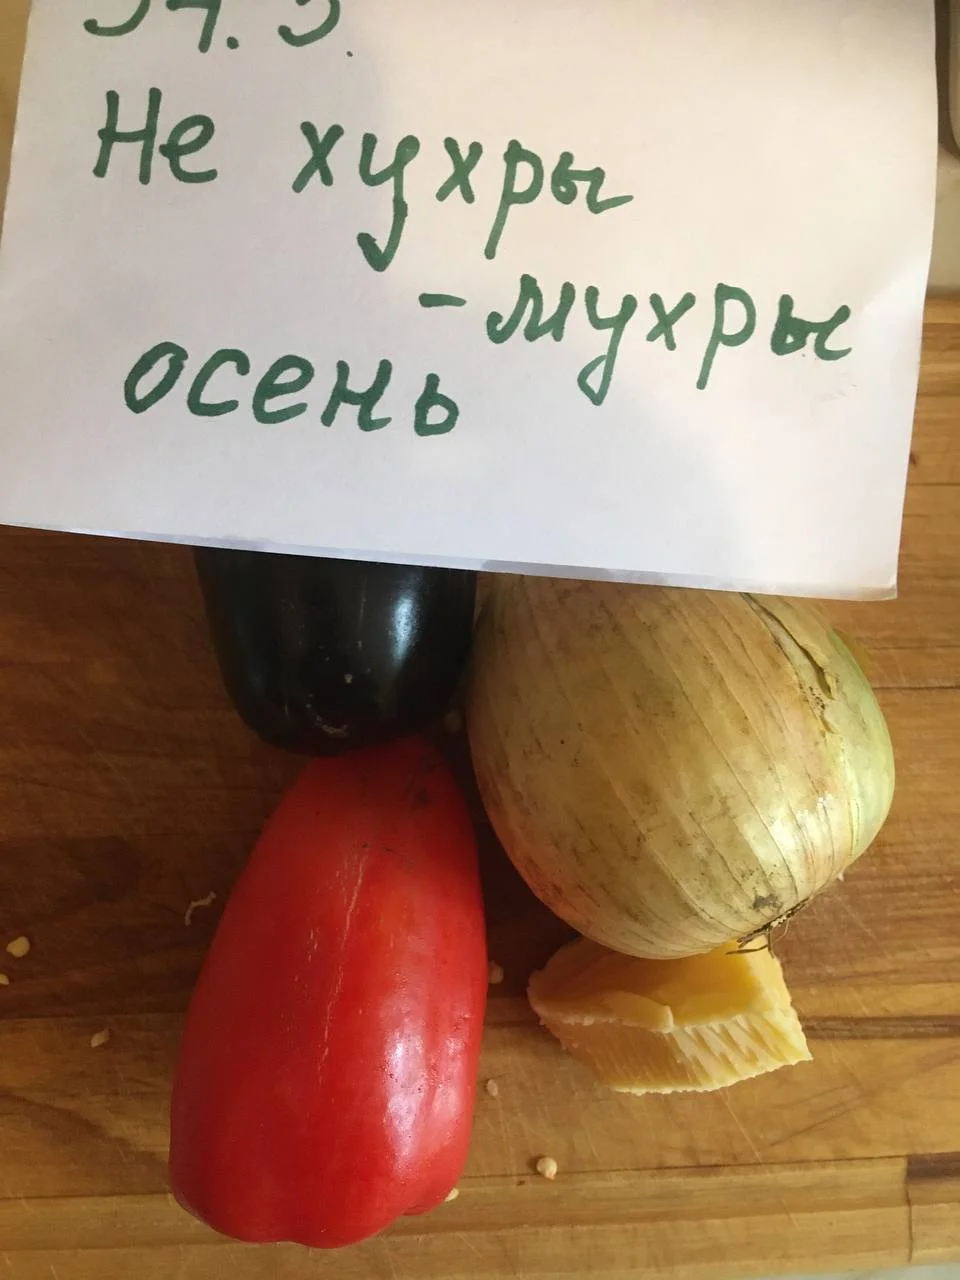 Не хухры
-мухры
осень